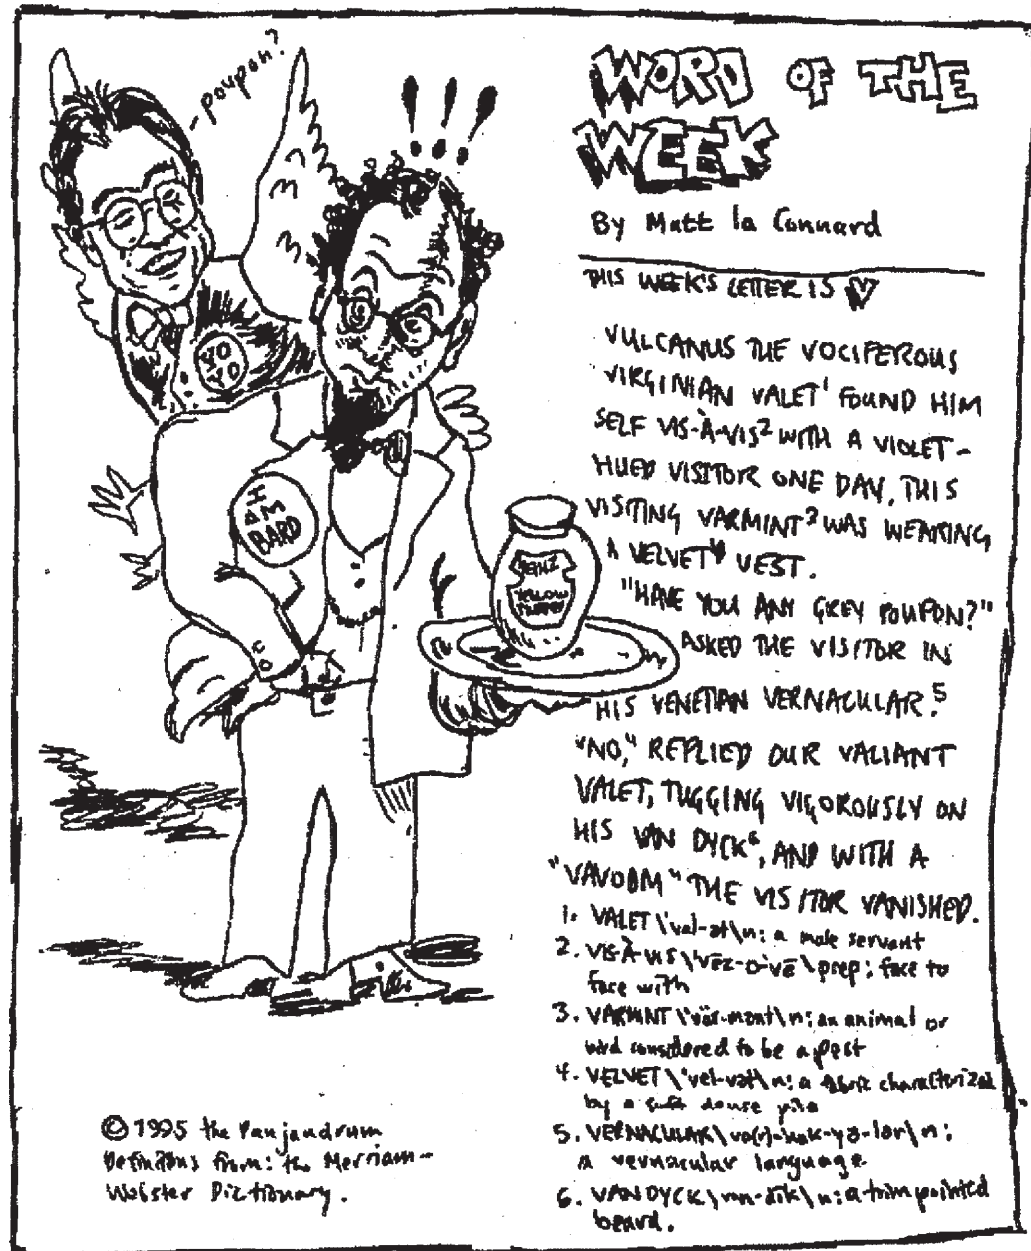 -poupon?
YO
YO
HAM
BARD
HEINZ
YELLOW
WORD OF THE
WEEK
By Matt la Connard
THIS WEEK'S LETTER IS V
VULCANUS THE VOCIFEROUS
VIRGINIAN VALET¹ FOUND HIM
SELF VIS-À-VIS² WITH A VIOLET-
HUED VISITOR ONE DAY, THIS
VISITING VARMINT³ WAS WEARING
A VELVET⁴ VEST.
"HAVE YOU ANY GREY POUPON?"
ASKED THE VISITOR IN
HIS VENETIAN VERNACULAR.⁵
"NO," REPLIED OUR VALIANT
VALET, TUGGING VIGOROUSLY ON
HIS VAN DYCK⁶, AND WITH A
"VAVOOM" THE VISITOR VANISHED.
1. VALET \'val-ət\n: a male servant
2. VIS-À-VIS \'vēz-ə-'vē\ prep: face to
face with
3. VARMINT \'vär-mənt\n: an animal or
bird considered to be a pest
4. VELVET \'vel-vət\n: a fabric characterized
by a soft dense pile
5. VERNACULAR \və(r)-nak-yə-lər\n:
a vernacular language
6. VANDYCK \van-dīk\n: a trim pointed
beard.
© 1995 the Panjandrum
Definitions from: the Merriam-
Webster Dictionary.